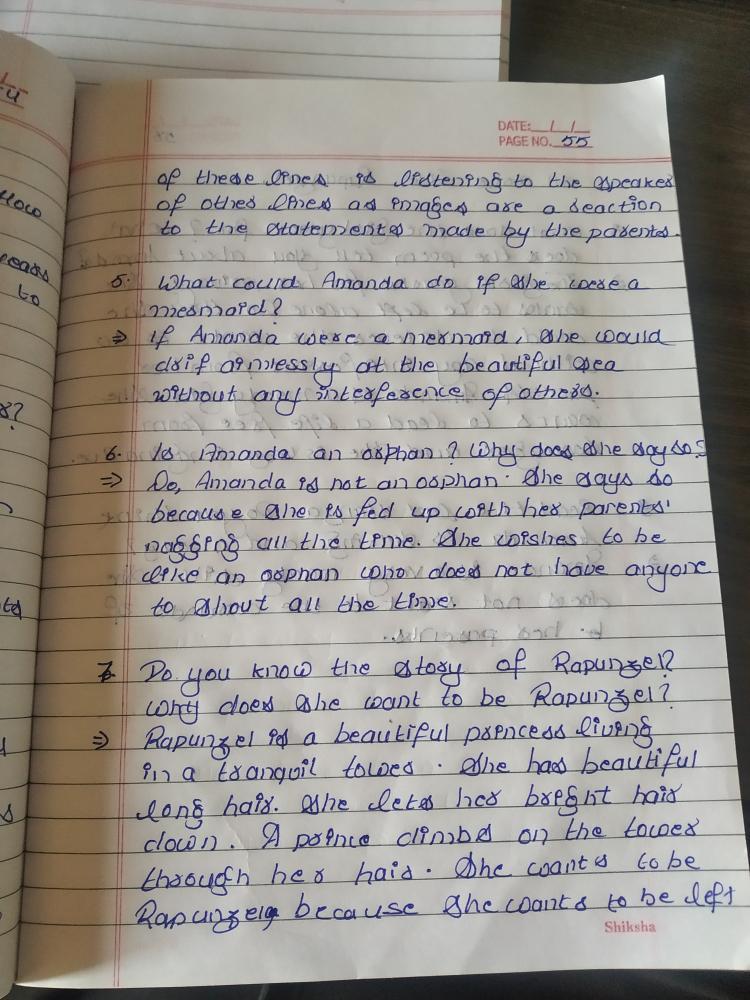 DATE: / /
PAGE NO. 55
of these lines is listening to the speaker
of other lines as images are a reaction
to the statements made by the parents.
5. What could Amanda do if she were a
mermaid?
⇒ If Amanda were a mermaid, she would
drif aimlessly at the beautiful sea
without any interference of others.
6. Is Amanda an orphan? Why does she say so?
⇒ Do, Amanda is not an orphan. She says so
because she is fed up with her parents'
nagging all the time. She wishes to be
like an orphan who does not have anyone
to shout all the time.
7. Do you know the story of Rapunzel?
Why does she want to be Rapunzel?
⇒ Rapunzel is a beautiful princess living
in a tranquil tower. She has beautiful
long hair. She lets her bright hair
down. A prince climbs on the tower
through her hair. She wants to be
Rapunzel because she wants to be left
Shiksha